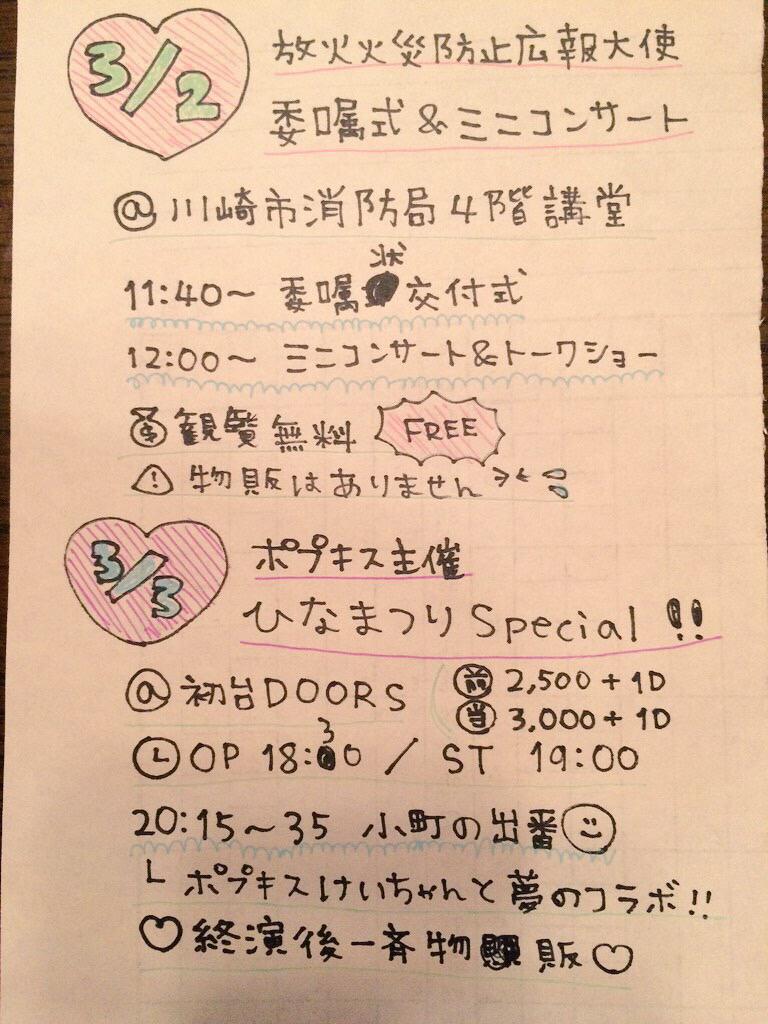 3/2
放火火災防止広報大使
委嘱式&ミニコンサート
@川崎市消防局4階講堂
11:40〜 委嘱状交付式
12:00〜 ミニコンサート&トークショー
観覧無料 FREE
物販はありません
3/3
ポプキス主催
ひなまつりSpecial!!
@初台DOORS
前 2,500+1D
当 3,000+1D
OP 18:30 / ST 19:00
20:15〜35 小町の出番
└ ポプキスけいちゃんと夢のコラボ!!
♡終演後一斉物販♡